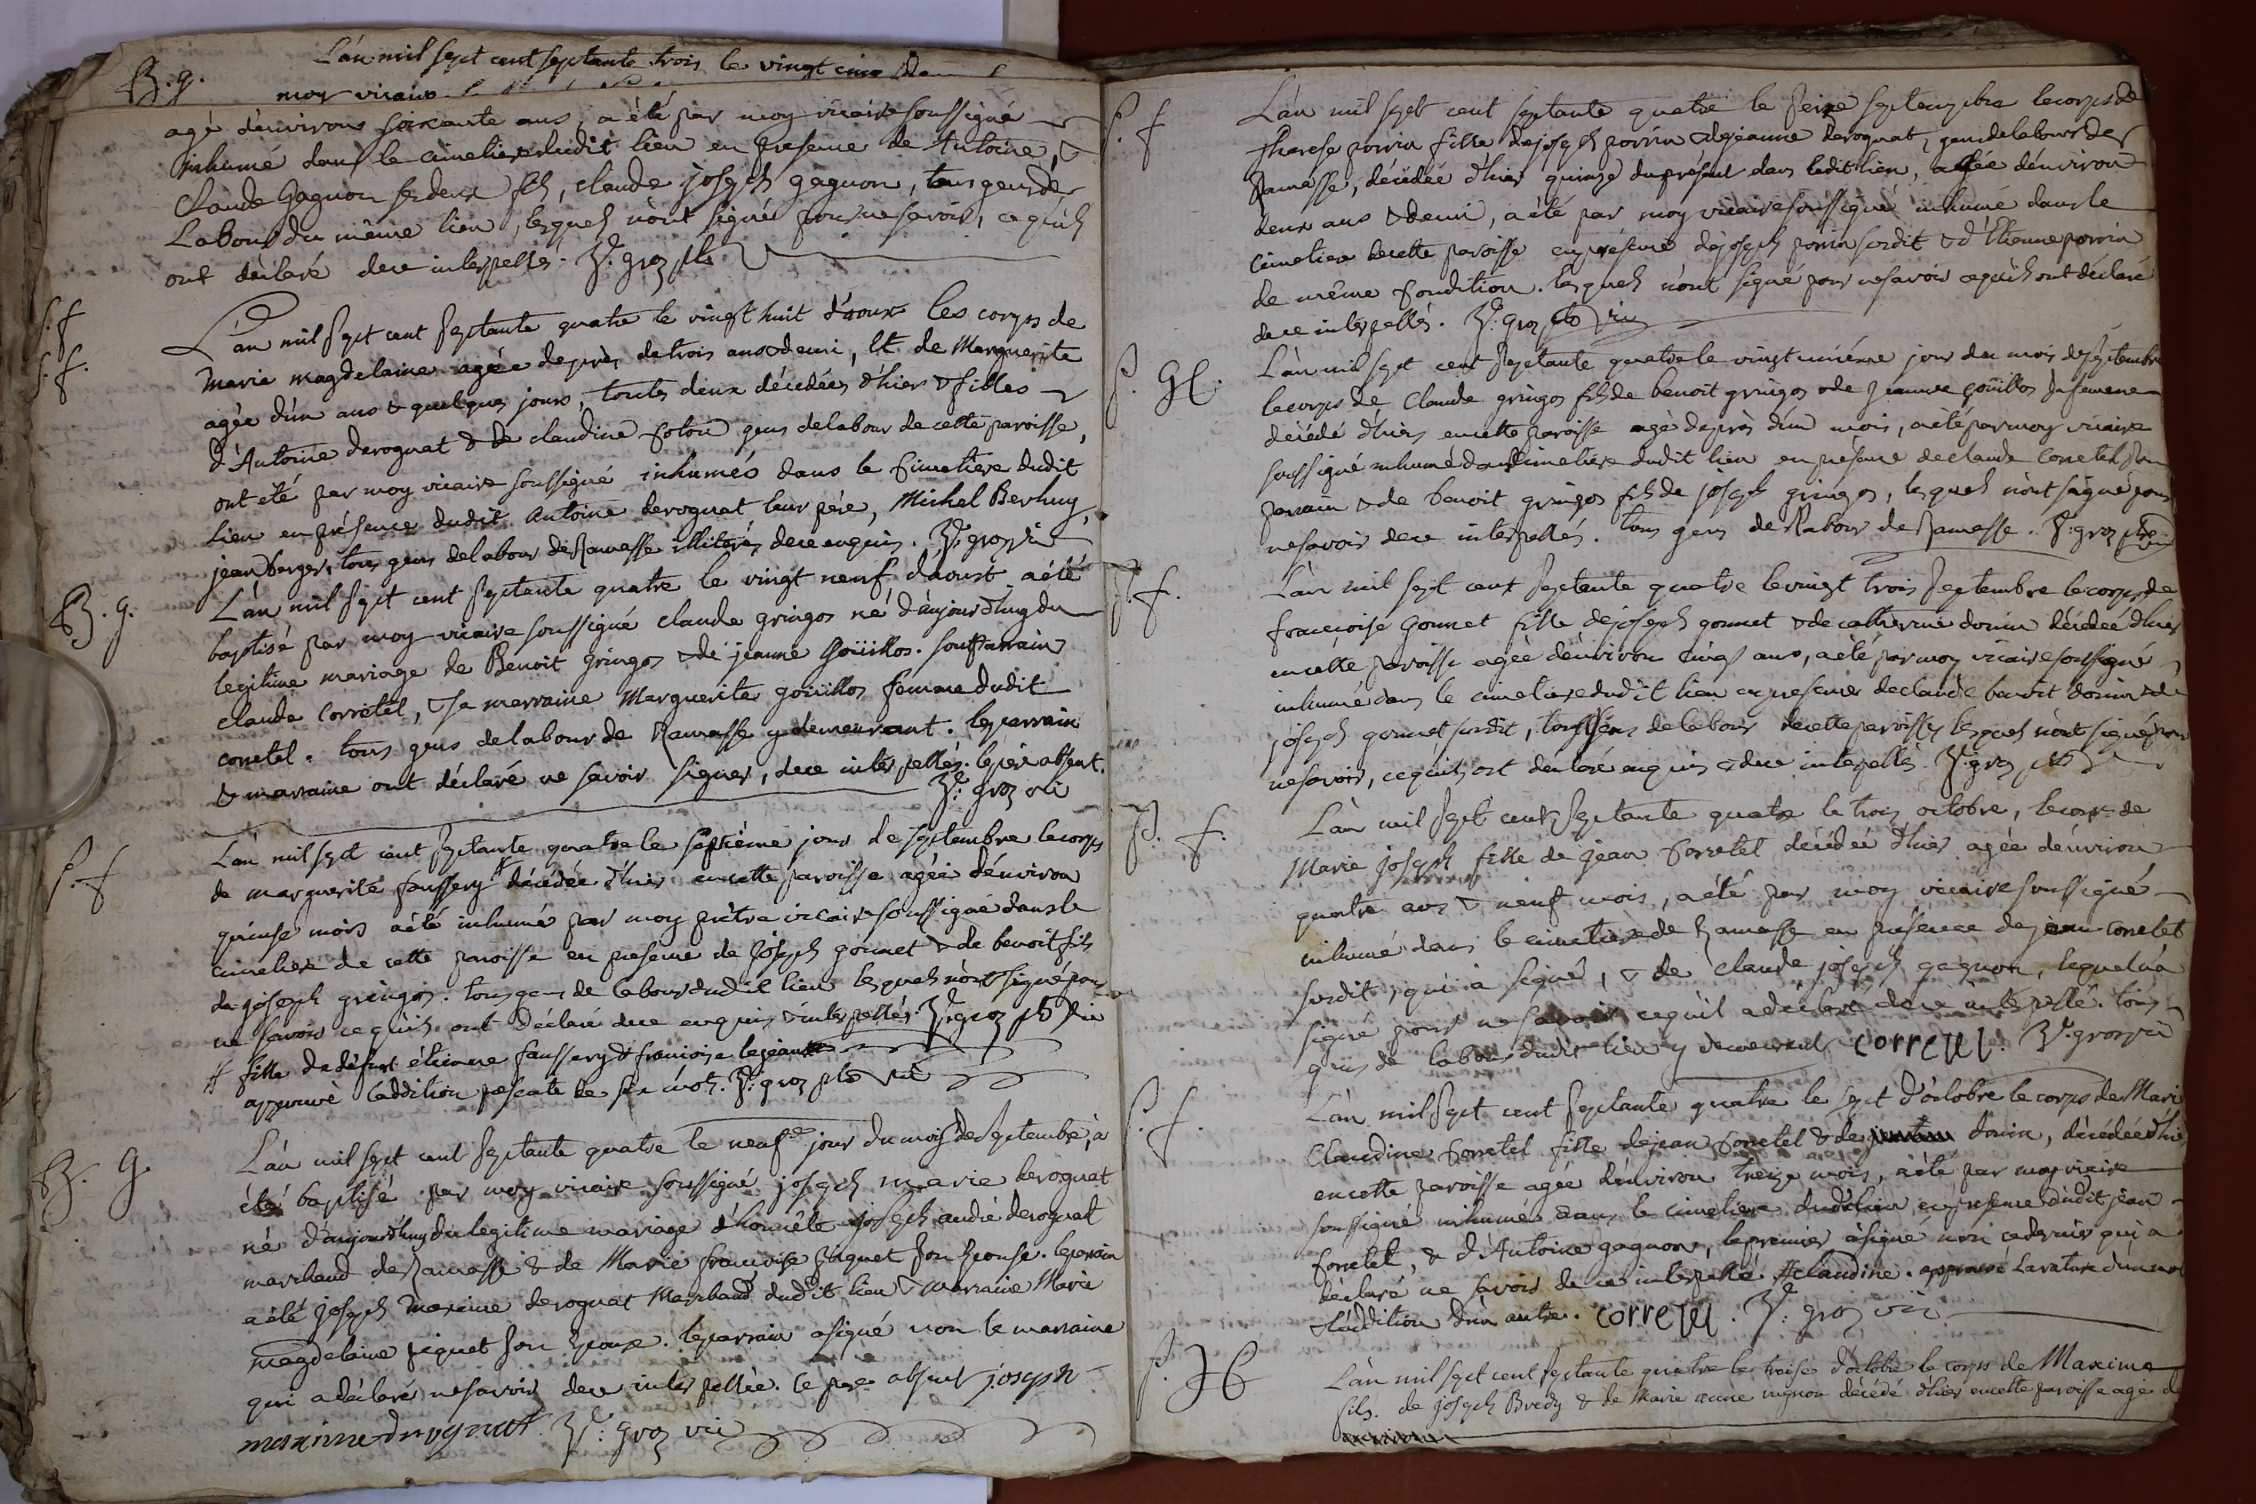 B. g.
L'an mil sept cent septante trois le vingt cinq
moy vicaire
agé d'environs soixante ans, a été par moy vicaire soussigné
inhumé dans le cimetiere dudit lieu en presence de Antoine, &
Claude Gagnon ses deux fils, claude joseph gagnon, tous gens de
Labour du même lieu, lesquels n'ont signé pour ne savoir, ce qu'ils
ont déclaré de ce interpellés. gros ptre
s. f.
s. f.
L'an mil sept cent septante quatre le vingt huit d'aoust les corps de
marie magdelaine agée de près de trois ans & demi, et de Marguerite
agée d'un ans & quelques jours, toutes deux décédées d'hier & filles
d'Antoine deroguat & de claudine gens de labour de cette paroisse,
ont été par moy vicaire soussigné inhumés dans le cimetiere dudit
lieu en présence dudit Antoine deroguat leur pére, Michel Berhuy,
jean berger, tous gens de labour de Ramasse illiterés de ce enquis. gros vic
B. g.
L'an mil sept cent septante quatre le vingt neuf d'aoust a été
baptisé par moy vicaire soussigné claude gringos né d'aujourd'huy du
legitime mariage de Benoit gringos & de jeanne goüillos. son parrain
claude Corretel, & sa marraine Marguerite goüillos femme dudit
corretel. tous gens de labour de Ramasse y demeurant. le parrain
& marraine ont déclaré ne savoir signer, de ce interpellés. le pére absent.
gros vic
s. f
L'an mil sept cent septante quatre le septiéme jour de septembre le corps
de marguerite faussery # décédée d'hier en cette paroisse agée d'environ
quinse mois a été inhumé par moy prêtre vicaire soussigné dans le
cimetiere de cette paroisse en presence de Joseph gonnet & de benoit fils
de joseph gringos. tous gens de labour dudit lieu lesquels n'ont signé pour
ne savoir ce qu'ils ont déclaré de ce enquis & interpellés. gros ptre vic
# fille de défunt étienne faussery & francoise
approuvé l'addition des six mots. gros ptre vic
B. G.
L'an mil sept cent septante quatre le neuf.e jour du mois de septembre, a
été baptisé par moy vicaire soussigné joseph marie deroguat
né d'aujourd'huy du legitime mariage d'honnête joseph andré deroguat
marchand de Ramasse & de Marie francoise piquet son epouse. le parrain
a été joseph maxime deroguat Marchand dudit lieu & marraine Marie
magdelaine piquet son epouse. le parrain a signé non la marraine
qui a déclaré ne savoir de ce interpellée. le pere absent joseph
maxime deroguat. gros vic
s. f
L'an mil sept cent septante quatre le seize septembre le corps de
therese povin fille de joseph povin & de jeanne deroguat, gens de labour de
Ramasse, décédée d'hier quinze du présent dans ledit lieu, agée d'environ
deux ans & demi, a été par moy vicaire soussigné inhumé dans le
cimetiere de cette paroisse en présence de joseph povin susdit & d'Etienne povin
de même condition. lesquels n'ont signé pour ne savoir ce qu'ils ont déclaré
de ce interpellés. gros ptre vic
s. Gl.
L'an mil sept cent septante quatre le vingt uniéme jour du mois de septembre
le corps de Claude gringos fils de benoit gringos & de jeanne goüillos sa femme
décédé d'hier en cette paroisse agé de près d'un mois, a été par moy vicaire
soussigné inhumé dans cimetiere dudit lieu en présence de claude Corretel son
parrain & de benoit gringos fils de joseph gringos, lesquels n'ont signé pour
ne savoir de ce interpellés. tous gens de labour de Ramasse. gros ptre vic
s. f.
L'an mil sept cent septante quatre le vingt trois septembre le corps de
francoise gonnet fille de joseph gonnet & de catherine donin décédée d'hier
en cette paroisse agée d'environ cinq ans, a été par moy vicaire soussigné
inhumé dans le cimetiere dudit lieu en presence de claude benoit donin & de
joseph gonnet susdit, tous gens de labour de cette paroisse lesquels n'ont signé pour
ne savoir, ce qu'ils ont declaré enquis & de ce interpellés. gros ptre
s. f.
L'an mil sept cent septante quatre le trois octobre, le corps de
Marie joseph fille de jean Corretel décédée d'hier agée d'environ
quatre ans & neuf mois, a été par moy vicaire soussigné
inhumé dans le cimetiere de Ramasse en présence de jean corretel
susdit, qui a signé, & de claude joseph gagnon, lequel n'a
signé pour ne savoir ce qu'il a déclaré de ce interpellé. tous
gens de labour dudit lieu y demeurant correttel. gros vic
s. f.
L'an mil sept cent septante quatre le sept d'octobre le corps de Marie
Claudine Corretel fille de jean Corretel & de donin, décédée d'hier
en cette paroisse agée d'environ treize mois, a été par moy vicaire
soussigné inhumé dans le cimetiere dudit lieu en presence dudit jean
Corretel, & d'Antoine gagnon, le premier a signé non ce dernier qui a
déclaré ne savoir de ce interpellé. # claudine. approuvé la rature d'un mot
& l'addition d'un autre. correttel. gros vic
s.
L'an mil sept cent septante quatre le treise d'octobre le corps de Maxime
fils de joseph Bredy & de Marie anne vignon décédé d'hier en cette paroisse agé de